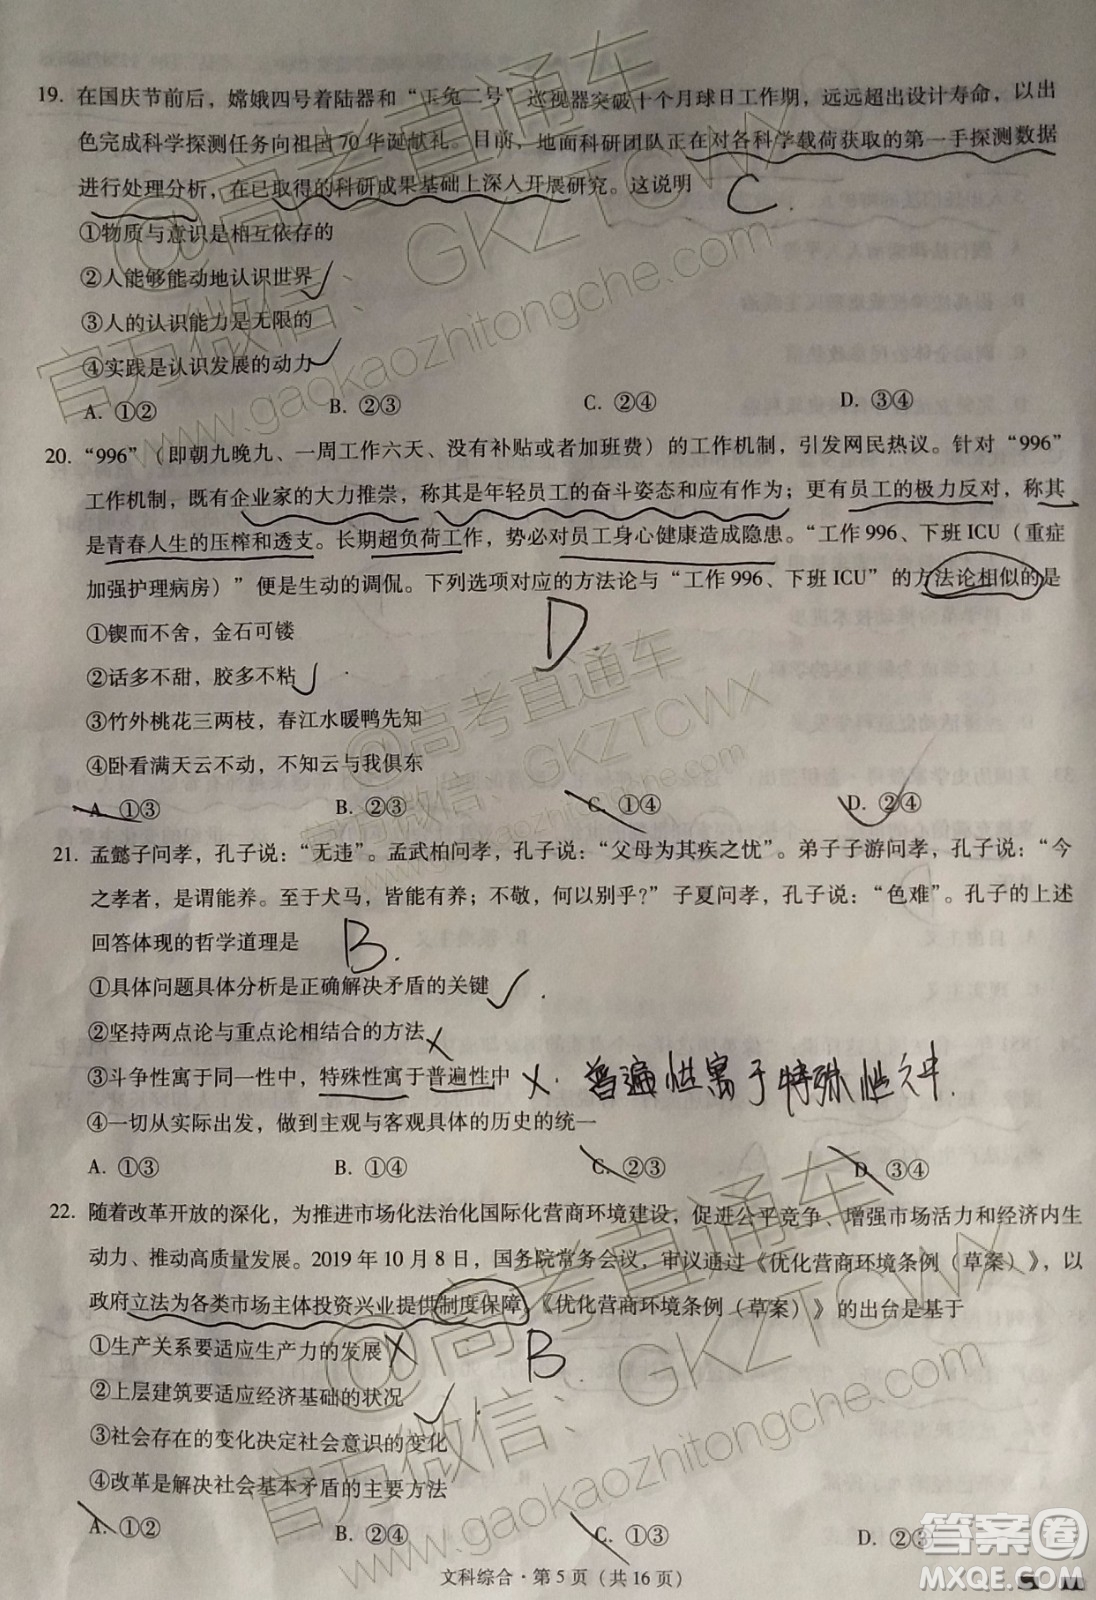 19. 在国庆节前后，嫦娥四号着陆器和“玉兔二号”巡视器突破十个月球日工作期，远远超出设计寿命，以出
色完成科学探测任务向祖国70华诞献礼。目前，地面科研团队正在对各科学载荷获取的第一手探测数据
进行处理分析，在已取得的科研成果基础上深入开展研究。这说明 C.
①物质与意识是相互依存的
②人能够能动地认识世界
③人的认识能力是无限的
④实践是认识发展的动力
A. ①② B. ②③ C. ②④ D. ③④
20. “996”（即朝九晚九、一周工作六天、没有补贴或者加班费）的工作机制，引发网民热议。针对“996”
工作机制，既有企业家的大力推崇，称其是年轻员工的奋斗姿态和应有作为；更有员工的极力反对，称其
是青春人生的压榨和透支。长期超负荷工作，势必对员工身心健康造成隐患。“工作996、下班ICU（重症
加强护理病房）”便是生动的调侃。下列选项对应的方法论与“工作996、下班ICU”的方法论相似的是
D
①锲而不舍，金石可镂
②话多不甜，胶多不粘
③竹外桃花三两枝，春江水暖鸭先知
④卧看满天云不动，不知云与我俱东
A. ①③ B. ②③ C. ①④ D. ②④
21. 孟懿子问孝，孔子说：“无违”。孟武柏问孝，孔子说：“父母为其疾之忧”。弟子子游问孝，孔子说：“今
之孝者，是谓能养。至于犬马，皆能有养；不敬，何以别乎?”子夏问孝，孔子说：“色难”。孔子的上述
回答体现的哲学道理是 B.
①具体问题具体分析是正确解决矛盾的关键
②坚持两点论与重点论相结合的方法
③斗争性寓于同一性中，特殊性寓于普遍性中 X. 普遍性寓于特殊性之中.
④一切从实际出发，做到主观与客观具体的历史的统一
A. ①③ B. ①④ C. ②③ D. ③④
22. 随着改革开放的深化，为推进市场化法治化国际化营商环境建设，促进公平竞争、增强市场活力和经济内生
动力、推动高质量发展。2019年10月8日，国务院常务会议，审议通过《优化营商环境条例（草案）》，以
政府立法为各类市场主体投资兴业提供制度保障，《优化营商环境条例（草案）》的出台是基于
①生产关系要适应生产力的发展 B.
②上层建筑要适应经济基础的状况
③社会存在的变化决定社会意识的变化
④改革是解决社会基本矛盾的主要方法
A. ①② B. ②④ C. ①③ D. ②③
文科综合·第5页（共16页）
@高考直通车
官方微信：GKZTCWX
www.gaokaozhitongche.com
@高考直通车
官方微信：GKZTCWX
www.gaokaozhitongche.com
@高考直通车
官方微信：GKZTCWX
www.gaokaozhitongche.com
答案圈
MXQE.COM